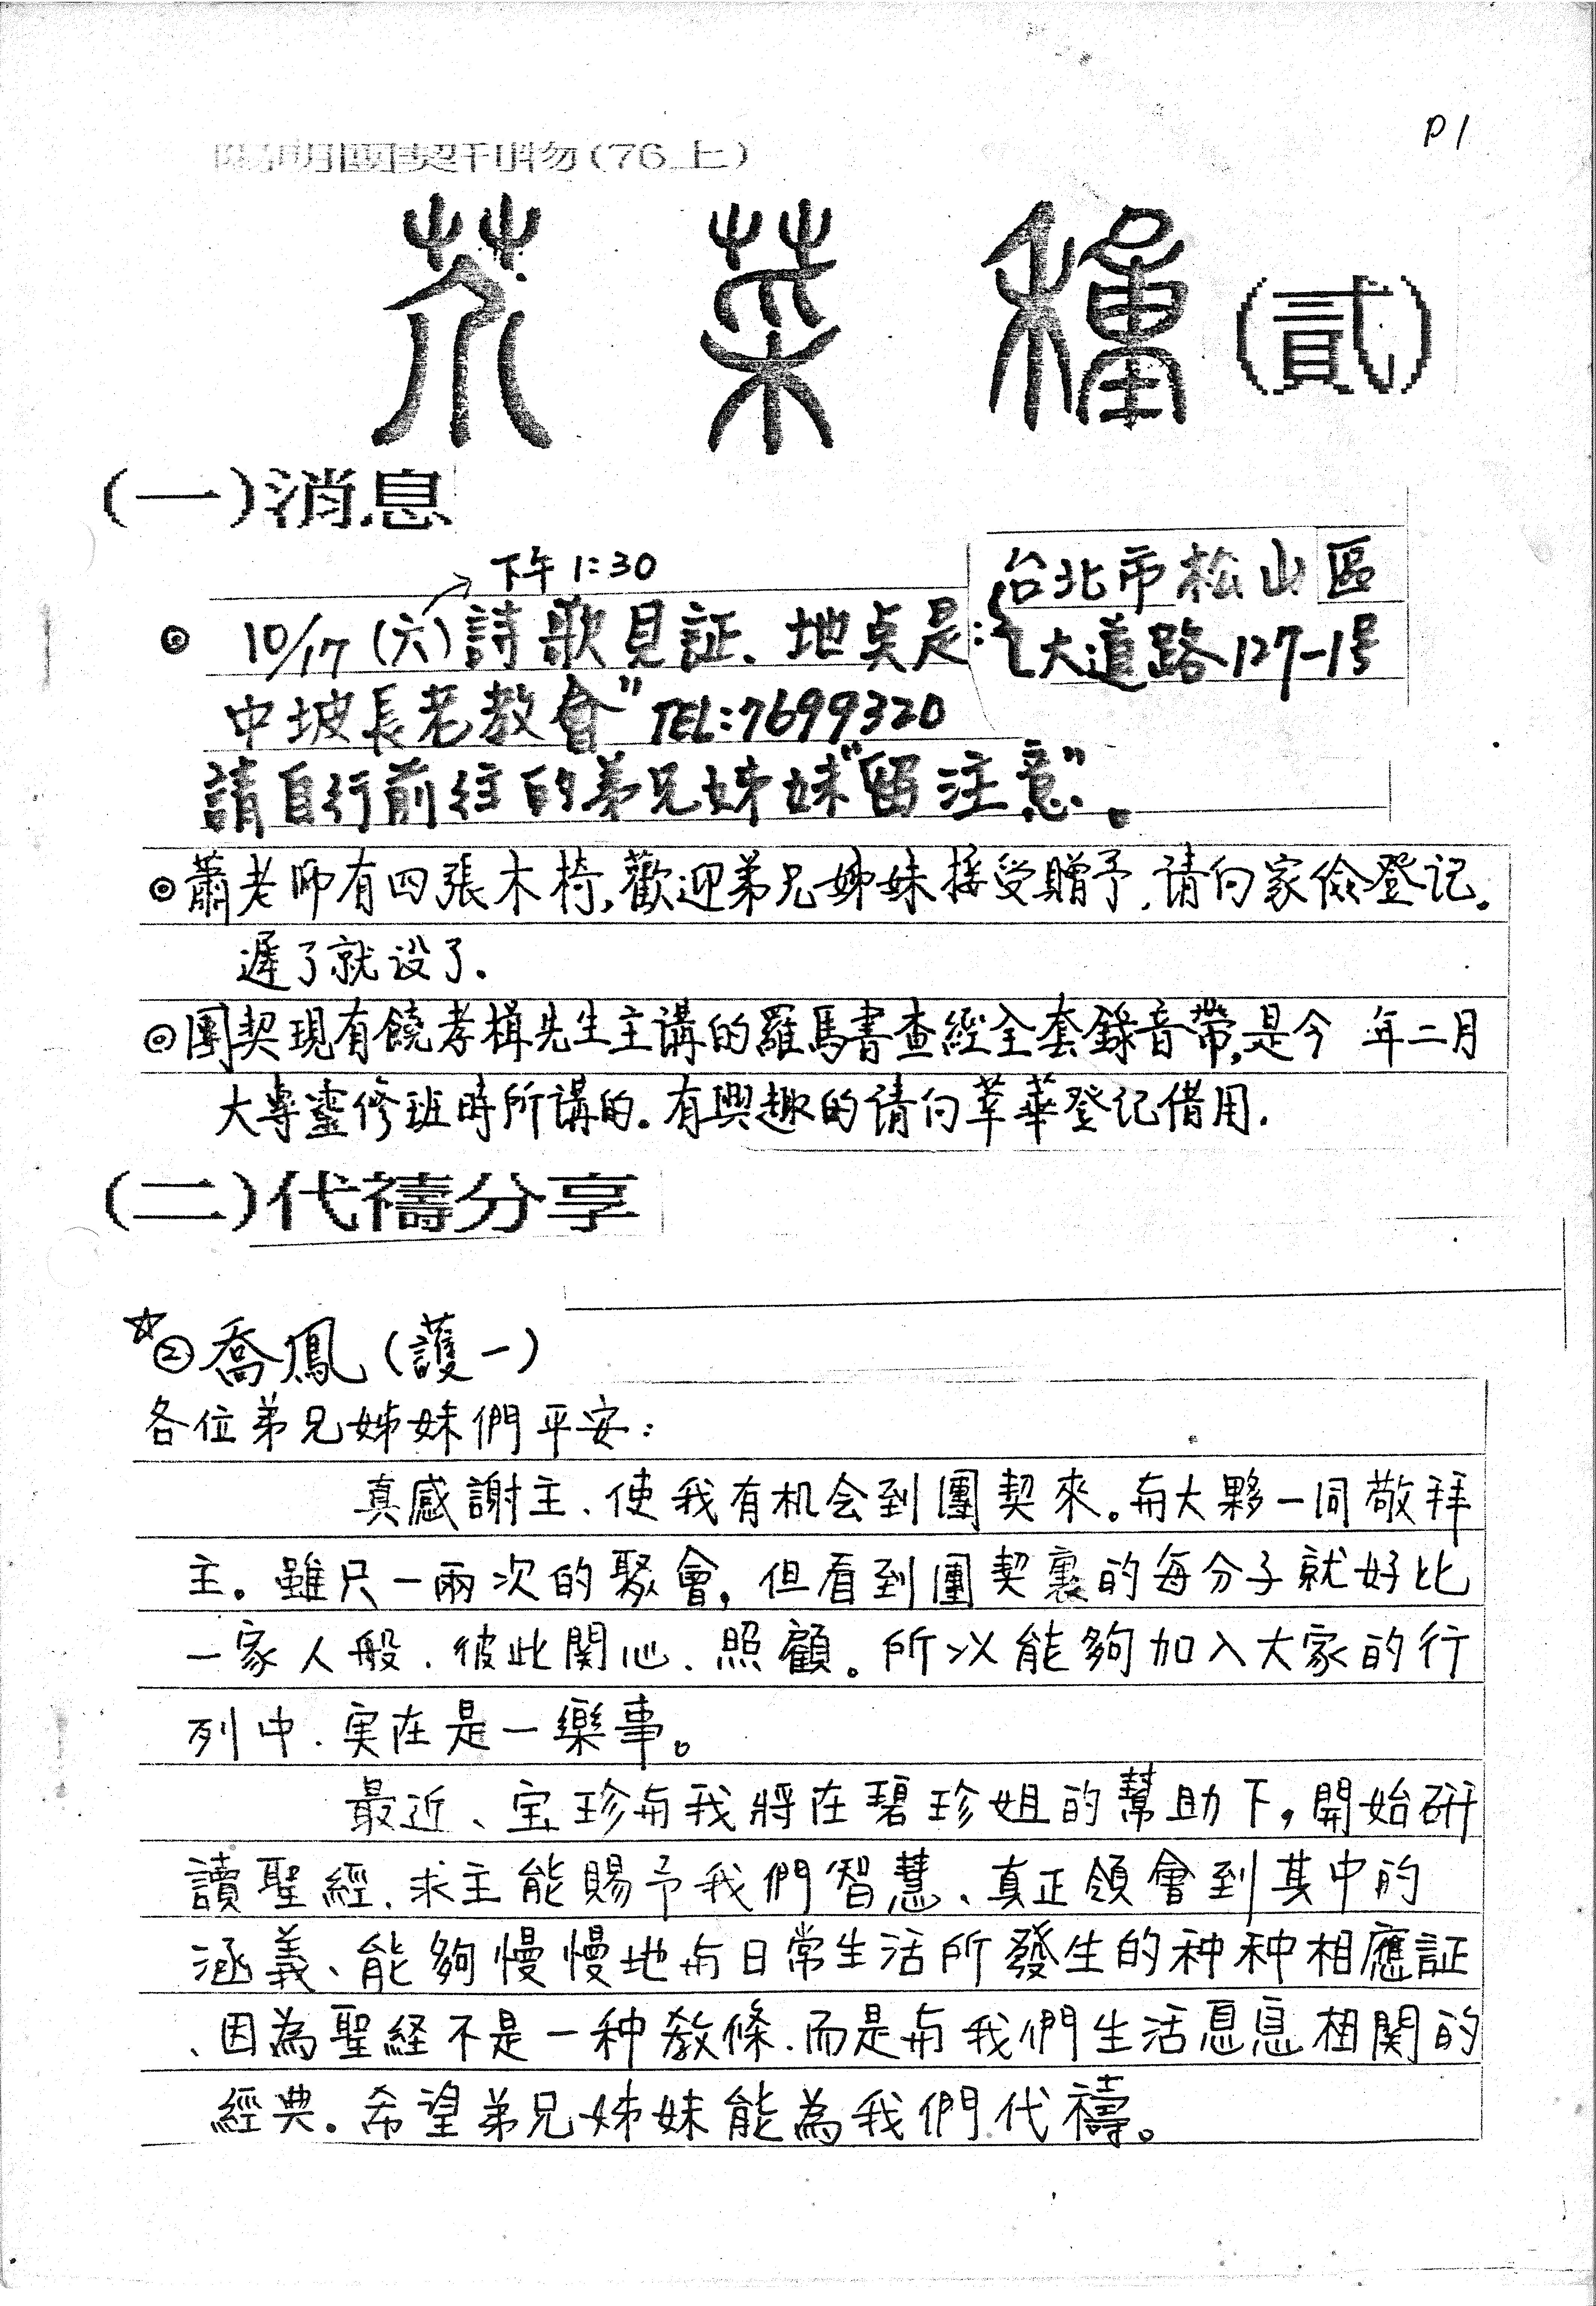 P1
團契刊物(76上)
芥菜種(貳)
(一)消息
下午1:30
◎ 10/17(六)詩歌見証、地点是:
台北市松山區
大道路127-1号
中坡長老教會" TEL:7699320
請自行前往的弟兄姊妹"留注意"。
◎蕭老師有四張木椅,歡迎弟兄姊妹接受贈予.请向家儉登记。
遲了就没了.
◎團契現有饒孝楫先生主講的羅馬書查經全套錄音帶,是今 年二月
大專靈修班時所講的。有興趣的请向萃華登记借用.
(二)代禱分享
☆②喬鳳(護一)
各位弟兄姊妹們平安:
真感謝主、使我有机会到團契來。与大夥一同敬拜
主。雖只一兩次的聚會,但看到團契裏的每分子就好比
一家人般、彼此関心、照顧。所以能夠加入大家的行
列中、実在是一樂事。
最近、宝珍与我將在碧珍姐的幫助下,開始研
讀聖經、求主能賜予我們智慧、真正領會到其中的
涵義、能夠慢慢地与日常生活所發生的种种相應証
、因為聖経不是一种教條、而是与我們生活息息相関的
經典。希望弟兄姊妹能為我們代禱。